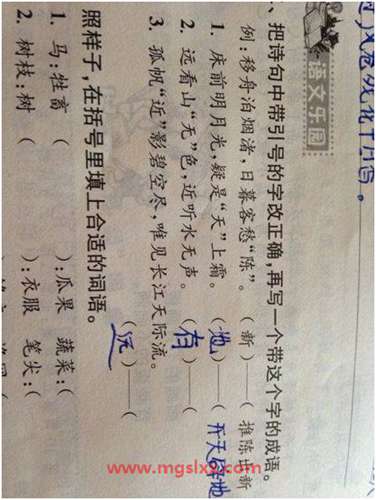 语文乐园
、把诗句中带引号的字改正确,再写一个带这个字的成语。
例:移舟泊烟渚,日暮客愁“陈”。 (新)—( 推陈出新
1. 床前明月光,疑是“天”上霜。 (地)—( 开天辟地
2. 远看山“无”色,近听水无声。 (有)—(
3. 孤帆“近”影碧空尽,唯见长江天际流。 (远)—(
照样子,在括号里填上合适的词语。
1. 马:牲畜 ( ):瓜果 蔬菜:(
2. 树枝:树 ( ):衣服 笔尖:(
www.mgslxx.com